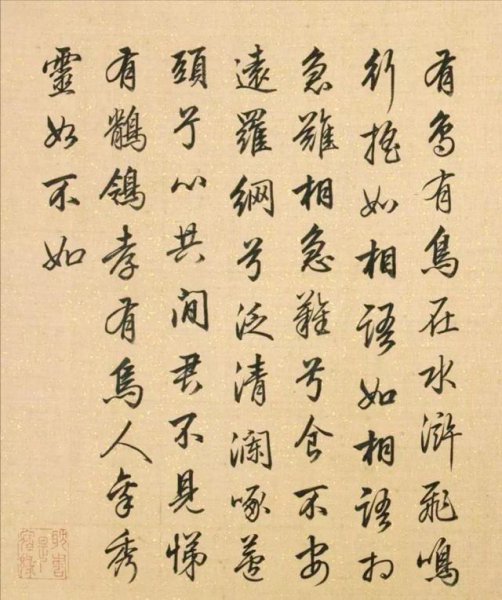 有鳥有鳥在水滸飛鳴
行搖如相語如相語扵
急難相急難兮食不安
遠羅網兮泛清瀾啄
頭兮心共閒君不見悌
有鶺鴒孝有烏人秉秀
靈如不如